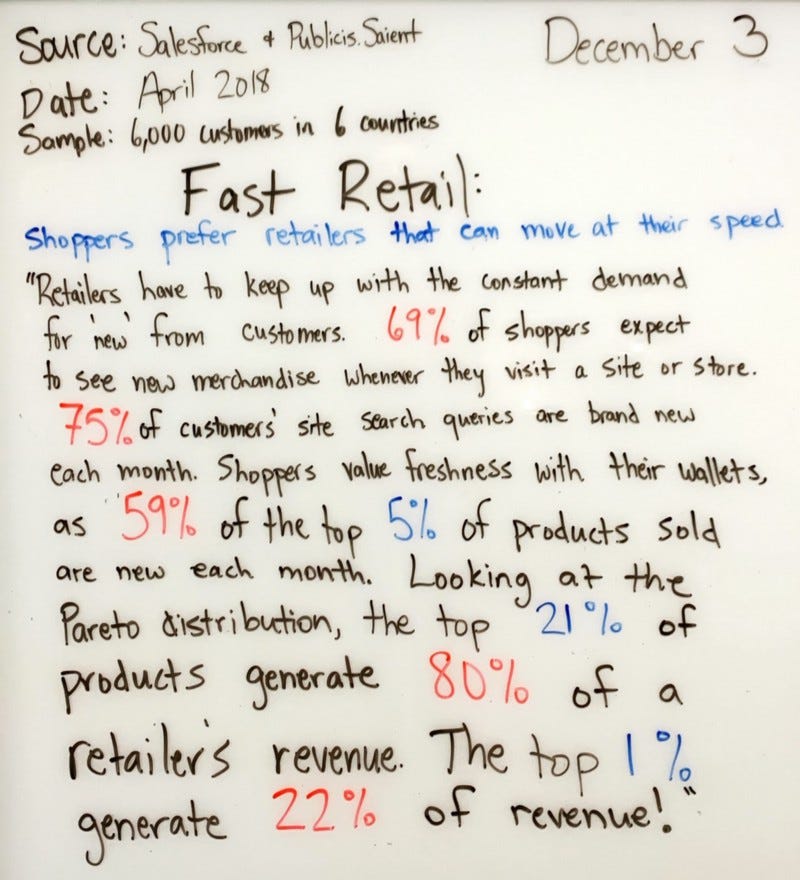 Source: Salesforce & Publicis.Saient
December 3
Date: April 2018
Sample: 6,000 customers in 6 countries
Fast Retail:
Shoppers prefer retailers that can move at their speed
"Retailers have to keep up with the constant demand
for 'new' from customers. 69% of shoppers expect
to see new merchandise whenever they visit a site or store.
75% of customers' site search queries are brand new
each month. Shoppers value freshness with their wallets,
as 59% of the top 5% of products sold
are new each month. Looking at the
Pareto distribution, the top 21% of
products generate 80% of a
retailer's revenue. The top 1%
generate 22% of revenue!"